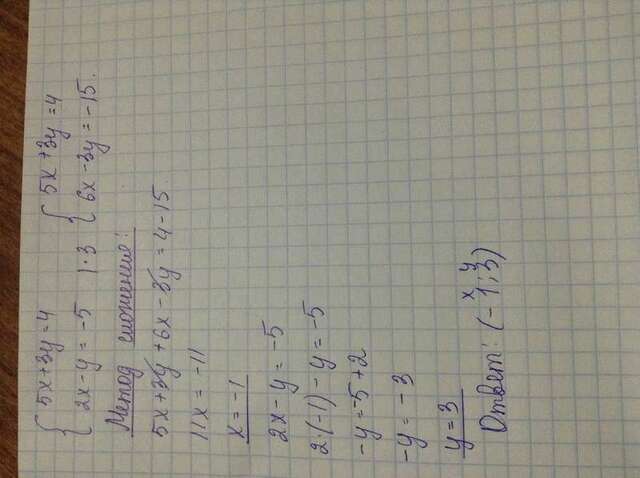 { 5x+3y=4 { 5x+3y=4
2x-y=-5 |·3 6x-3y=-15.
Метод сложения:
5x+3y+6x-3y=4-15
11x=-11
x=-1
2x-y=-5
2·(-1)-y=-5
-y=-5+2
-y=-3
y=3
x y
Ответ: (-1;3)